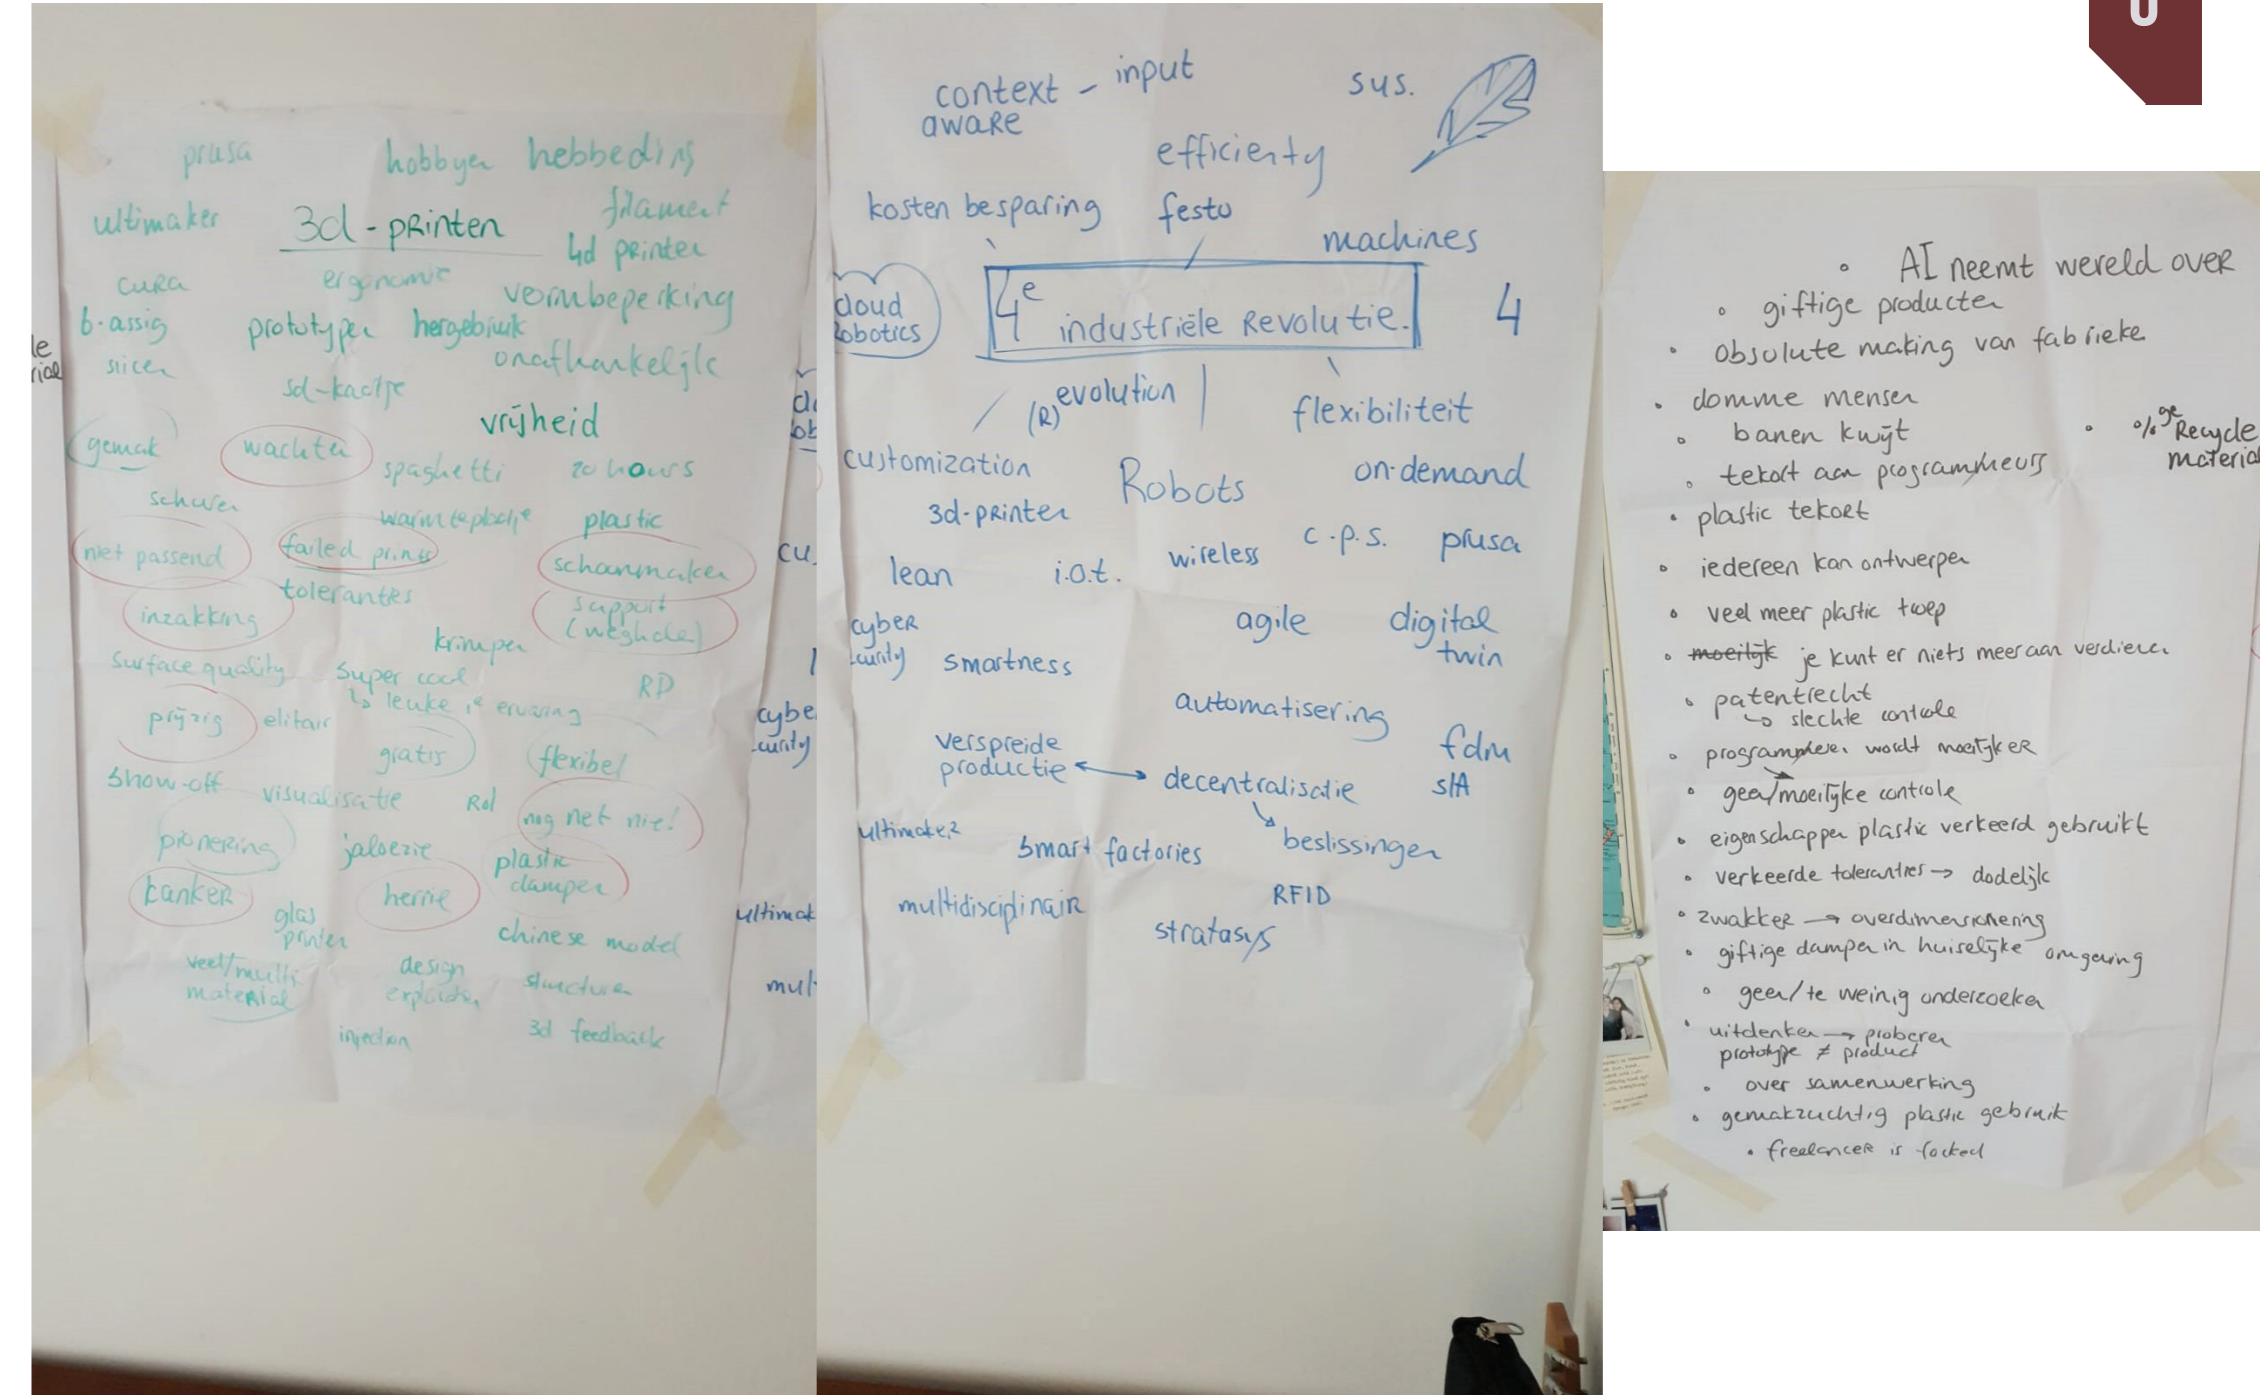 prusa
hobbyen hebbeding
ultimaker
3d-printen
filament
4d printen
cura
ergonomie
vormbeperking
b-assig
prototypen
hergebruik
onafhankelijk
slicen
sd-kaartje
vrijheid
gemak
wachten
spaghetti
20 hours
schuren
warmteplaatje
plastic
niet passend
failed prints
schoonmaken
inzakking
toleranties
support
(weghalen)
krimpen
surface quality
super cool
↳ leuke 1e ervaring
RP
prijzig
elitair
gratis
flexibel
show-off
visualisatie
RoI
nog net nie!
pionering
jaloezie
plastic
dampen
kanker
herrie
glas
printen
chinese model
veel/multi
material
design
exploiten
structuren
injection
3d feedback
context - input
aware
sus.
efficienty
kosten besparing
festo
machines
cloud
robotics
4e industriële Revolutie.
4
(R)evolution
flexibiliteit
customization
Robots
on-demand
3d-printen
c.p.s.
prusa
wireless
lean
i.o.t.
cyber
curity
smartness
agile
digital
twin
automatisering
verspreide
productie
decentralisatie
fdm
slA
ultimaker
smart factories
beslissingen
multidisciplinair
RFID
stratasys
le
rial
cu
cybe
curity
ultimak
mul
• AI neemt wereld over
• giftige producten
• absolute making van fabrieke
• domme mensen
• banen kwijt
• tekort aan programmeurs
• %ge Recycle
material
• plastic tekort
• iedereen kan ontwerpen
• veel meer plastic troep
• moeilijk je kunt er niets meer aan verdienen
• patentrecht
↳ slechte controle
• programmeren wordt moeilijker
• geen/moeilijke controle
• eigenschappen plastic verkeerd gebruikt
• verkeerde toleranties → dodelijk
• zwakker → overdimensionering
• giftige dampen in huiselijke omgeving
• geen/te weinig onderzoeken
• uitdenken → proberen
prototype ≠ product
• over samenwerking
• gemakzuchtig plastic gebruik
• freelancer is focked